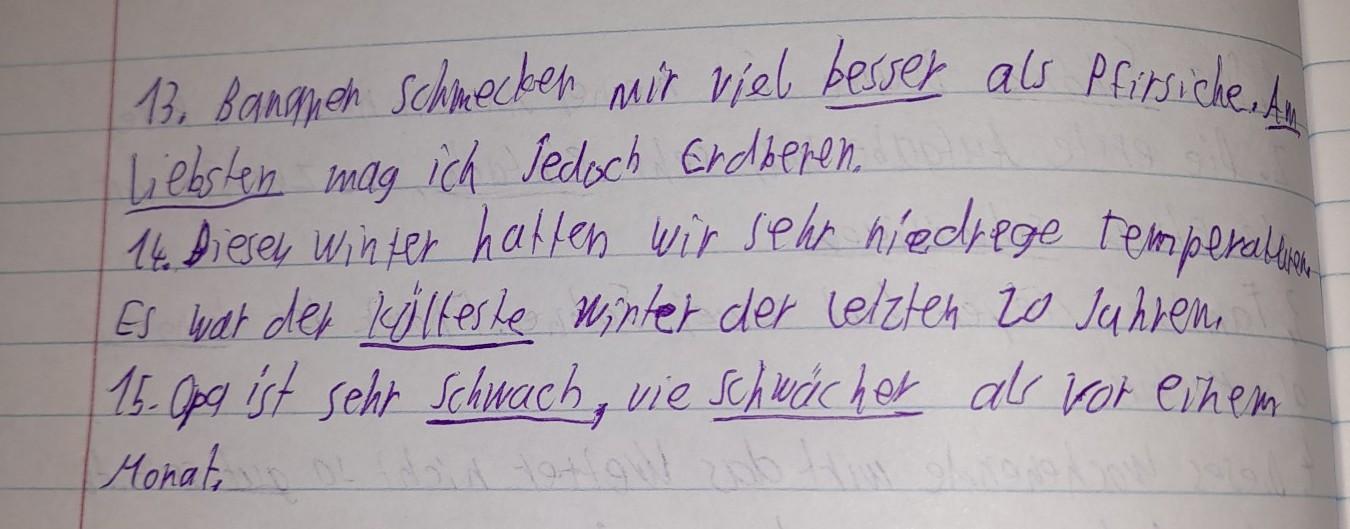 13. Bananen schmecken mir viel besser als Pfirsiche. Am
liebsten mag ich Jedoch Erdberen.
14. Diesen winter hatten wir sehr niedrege Temperaturen
Es war der kälteste winter der letzten 20 Jahren.
15. Opa ist sehr schwach, vie schwächer als vor einem
Monat.